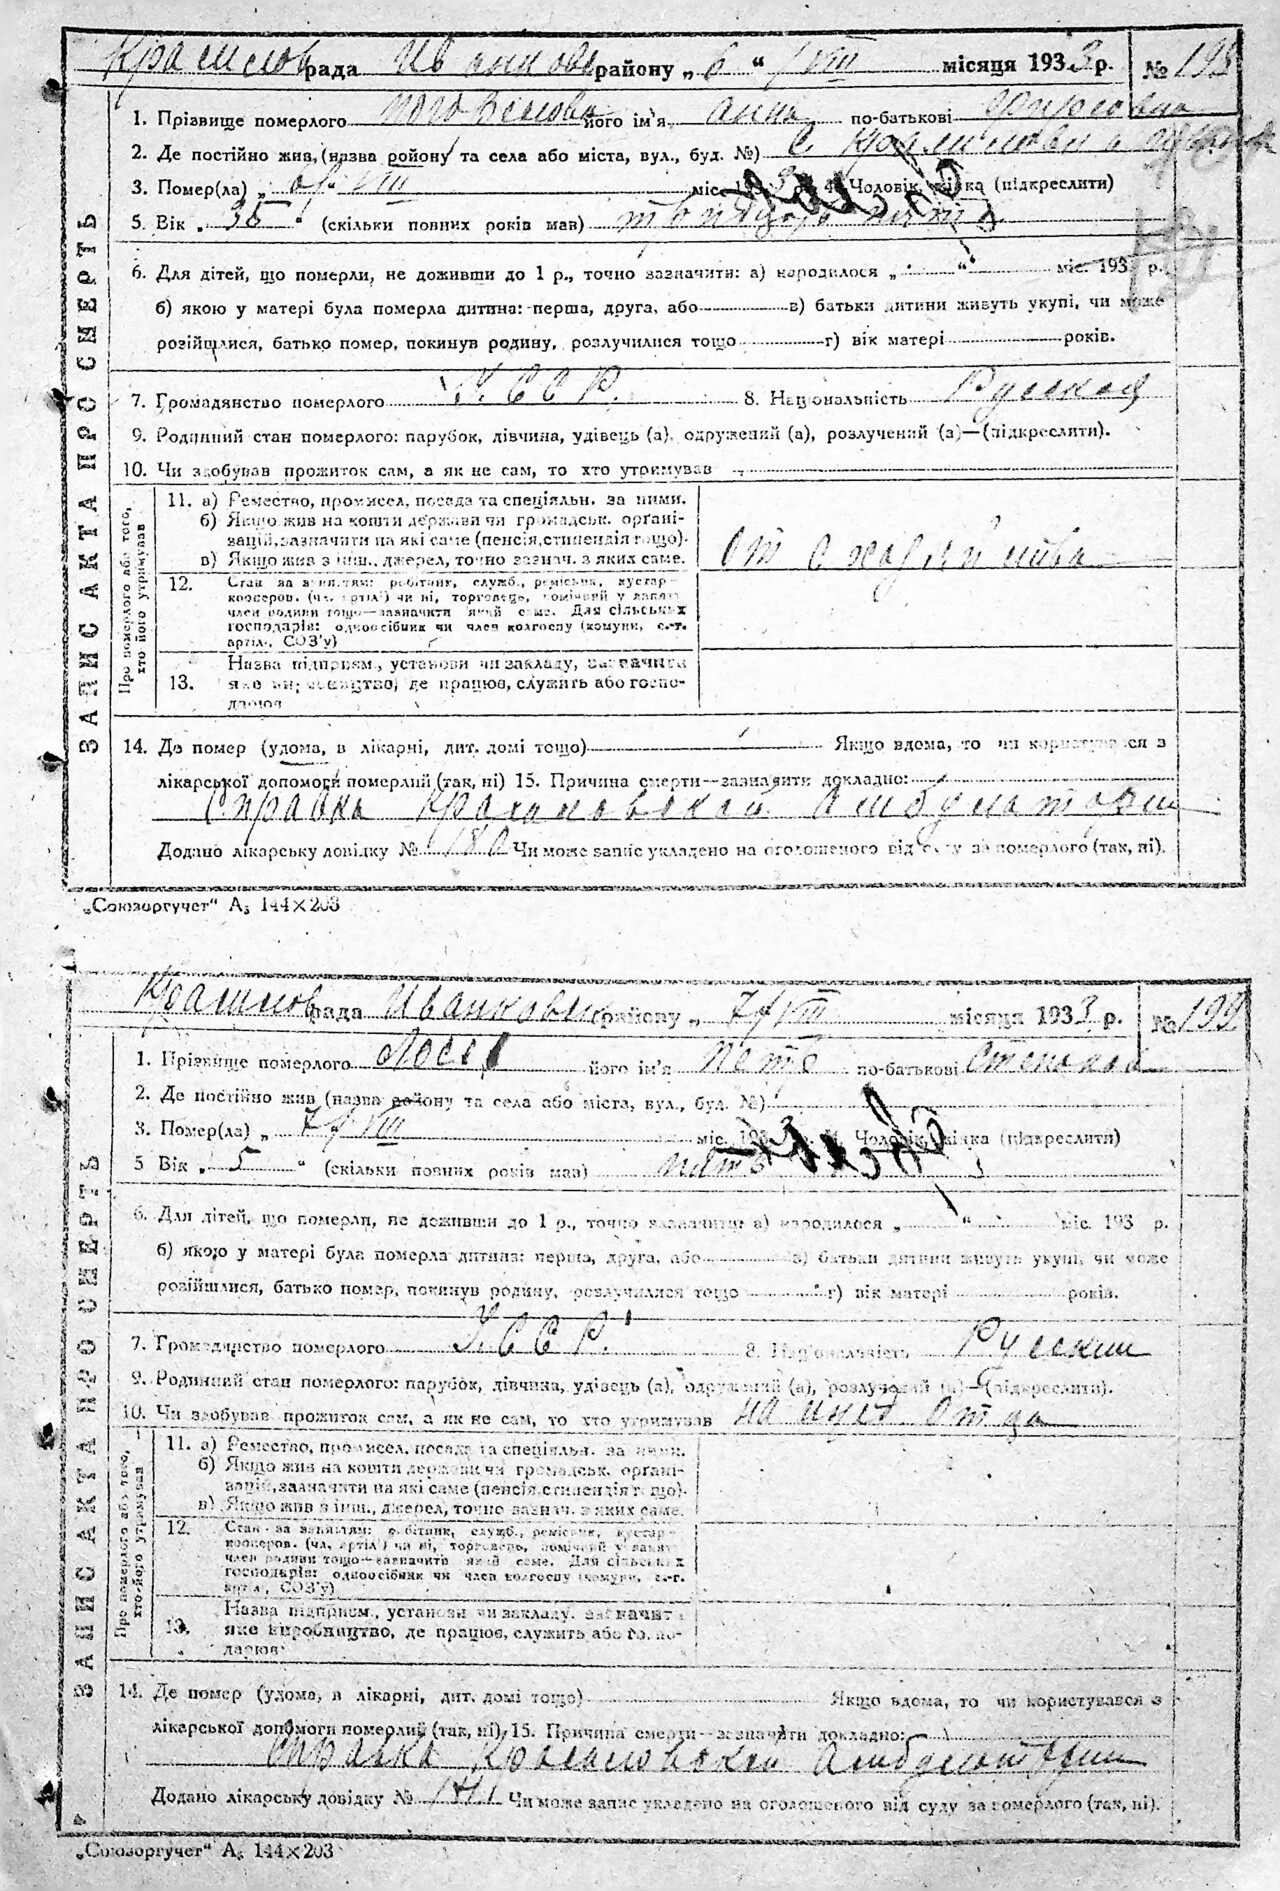 рада Иванков району „ 6 “ /VIII місяця 1933 р. № 198
1. Прізвище померлого його ім'я Анна по-батькові
2. Де постійно жив, (назва району та села або міста, вул., буд. №) с
3. Помер(ла) „ 6/VIII міс. 193 3 4. Чоловік, жінка (підкреслити)
5. Вік „ 35 “ (скільки повних років мав) тридцать пять
6. Для дітей, що померли, не доживши до 1 р., точно зазначити: а) народилося „ “ міс. 193 р.
б) якою у матері була померла дитина: перша, друга, або в) батьки дитини живуть укупі, чи може
розійшлися, батько помер, покинув родину, розлучилися тощо г) вік матері років.
7. Громадянство померлого У.С.С.Р. 8. Національність Русская
9. Родинний стан померлого: парубок, дівчина, удівець (а), одружений (а), розлучений (а)—(підкреслити).
10. Чи здобував прожиток сам, а як не сам, то хто утримував
ЗАПИС АКТА ПРО СМЕРТЬ
Про померлого або того, хто його утримував
11. а) Ремество, промисел, посада та спеціяльн. за ними.
б) Якщо жив на кошти держави чи громадськ. органі-
зацій, зазначити на які саме (пенсія, стипендія тощо).
в) Якщо жив з інш. джерел, точно зазнач. з яких саме.
от
12. Стан за заняттям: робітник, служб., ремісник, кустар-
кооперов. (чл. артіл) чи ні, торговець, помічний у занят.
член родини тощо—зазначити який саме. Для сільських
господарів: одноосібник чи член колгоспу (комуни, с.-г.
артіл., СОЗ'у)
13. Назва підприєм., установи чи закладу, зазначити
яке виробництво, де працює, служить або госпо-
дарює
14. Де помер (удома, в лікарні, дит. домі тощо) Якщо вдома, то чи користувався з
лікарської допомоги померлий (так, ні) 15. Причина смерти—зазначити докладно:
Справка Красиловской Амбулатории
Додано лікарську довідку № 180 Чи може запис укладено на оголошеного від суду за померлого (так, ні).
„Союзоргучет“ А₅ 144×203
рада Иванковск району „ 7/VIII місяця 1933 р. № 199
1. Прізвище померлого його ім'я Петр по-батькові
2. Де постійно жив (назва району та села або міста, вул., буд. №)
3. Помер(ла) „ 7/VIII міс. 193 3 4. Чоловік, жінка (підкреслити)
5 Вік „ 5 “ (скільки повних років мав) пять
6. Для дітей, що померли, не доживши до 1 р., точно зазначити: а) народилося „ “ міс. 193 р.
б) якою у матері була померла дитина: перша, друга, або в) батьки дитини живуть укупі, чи може
розійшлися, батько помер, покинув родину, розлучилися тощо г) вік матері років.
7. Громадянство померлого У.С.С.Р. 8. Національність Русский
9. Родинний стан померлого: парубок, дівчина, удівець (а), одружений (а), розлучений (а)—(підкреслити).
10. Чи здобував прожиток сам, а як не сам, то хто утримував на ижд. отца
ЗАПИС АКТА ПРО СМЕРТЬ
Про померлого або того, хто його утримував
11. а) Ремество, промисел, посада та спеціяльн. за ними.
б) Якщо жив на кошти держави чи громадськ. органі-
зацій, зазначити на які саме (пенсія, стипендія тощо).
в) Якщо жив з інш. джерел, точно зазнач. з яких саме.
12. Стан за заняттям: робітник, служб., ремісник, кустар-
кооперов. (чл. артіл) чи ні, торговець, помічний у занят.
член родини тощо—зазначити який саме. Для сільських
господарів: одноосібник чи член колгоспу (комуни, с.-г.
артіл., СОЗ'у)
13. Назва підприєм., установи чи закладу, зазначити
яке виробництво, де працює, служить або госпо-
дарює
14. Де помер (удома, в лікарні, дит. домі тощо) Якщо вдома, то чи користувався з
лікарської допомоги померлий (так, ні) 15. Причина смерти—зазначити докладно:
Справка Красиловской Амбулатории
Додано лікарську довідку № Чи може запис укладено на оголошеного від суду за померлого (так, ні).
„Союзоргучет“ А₅ 144×203